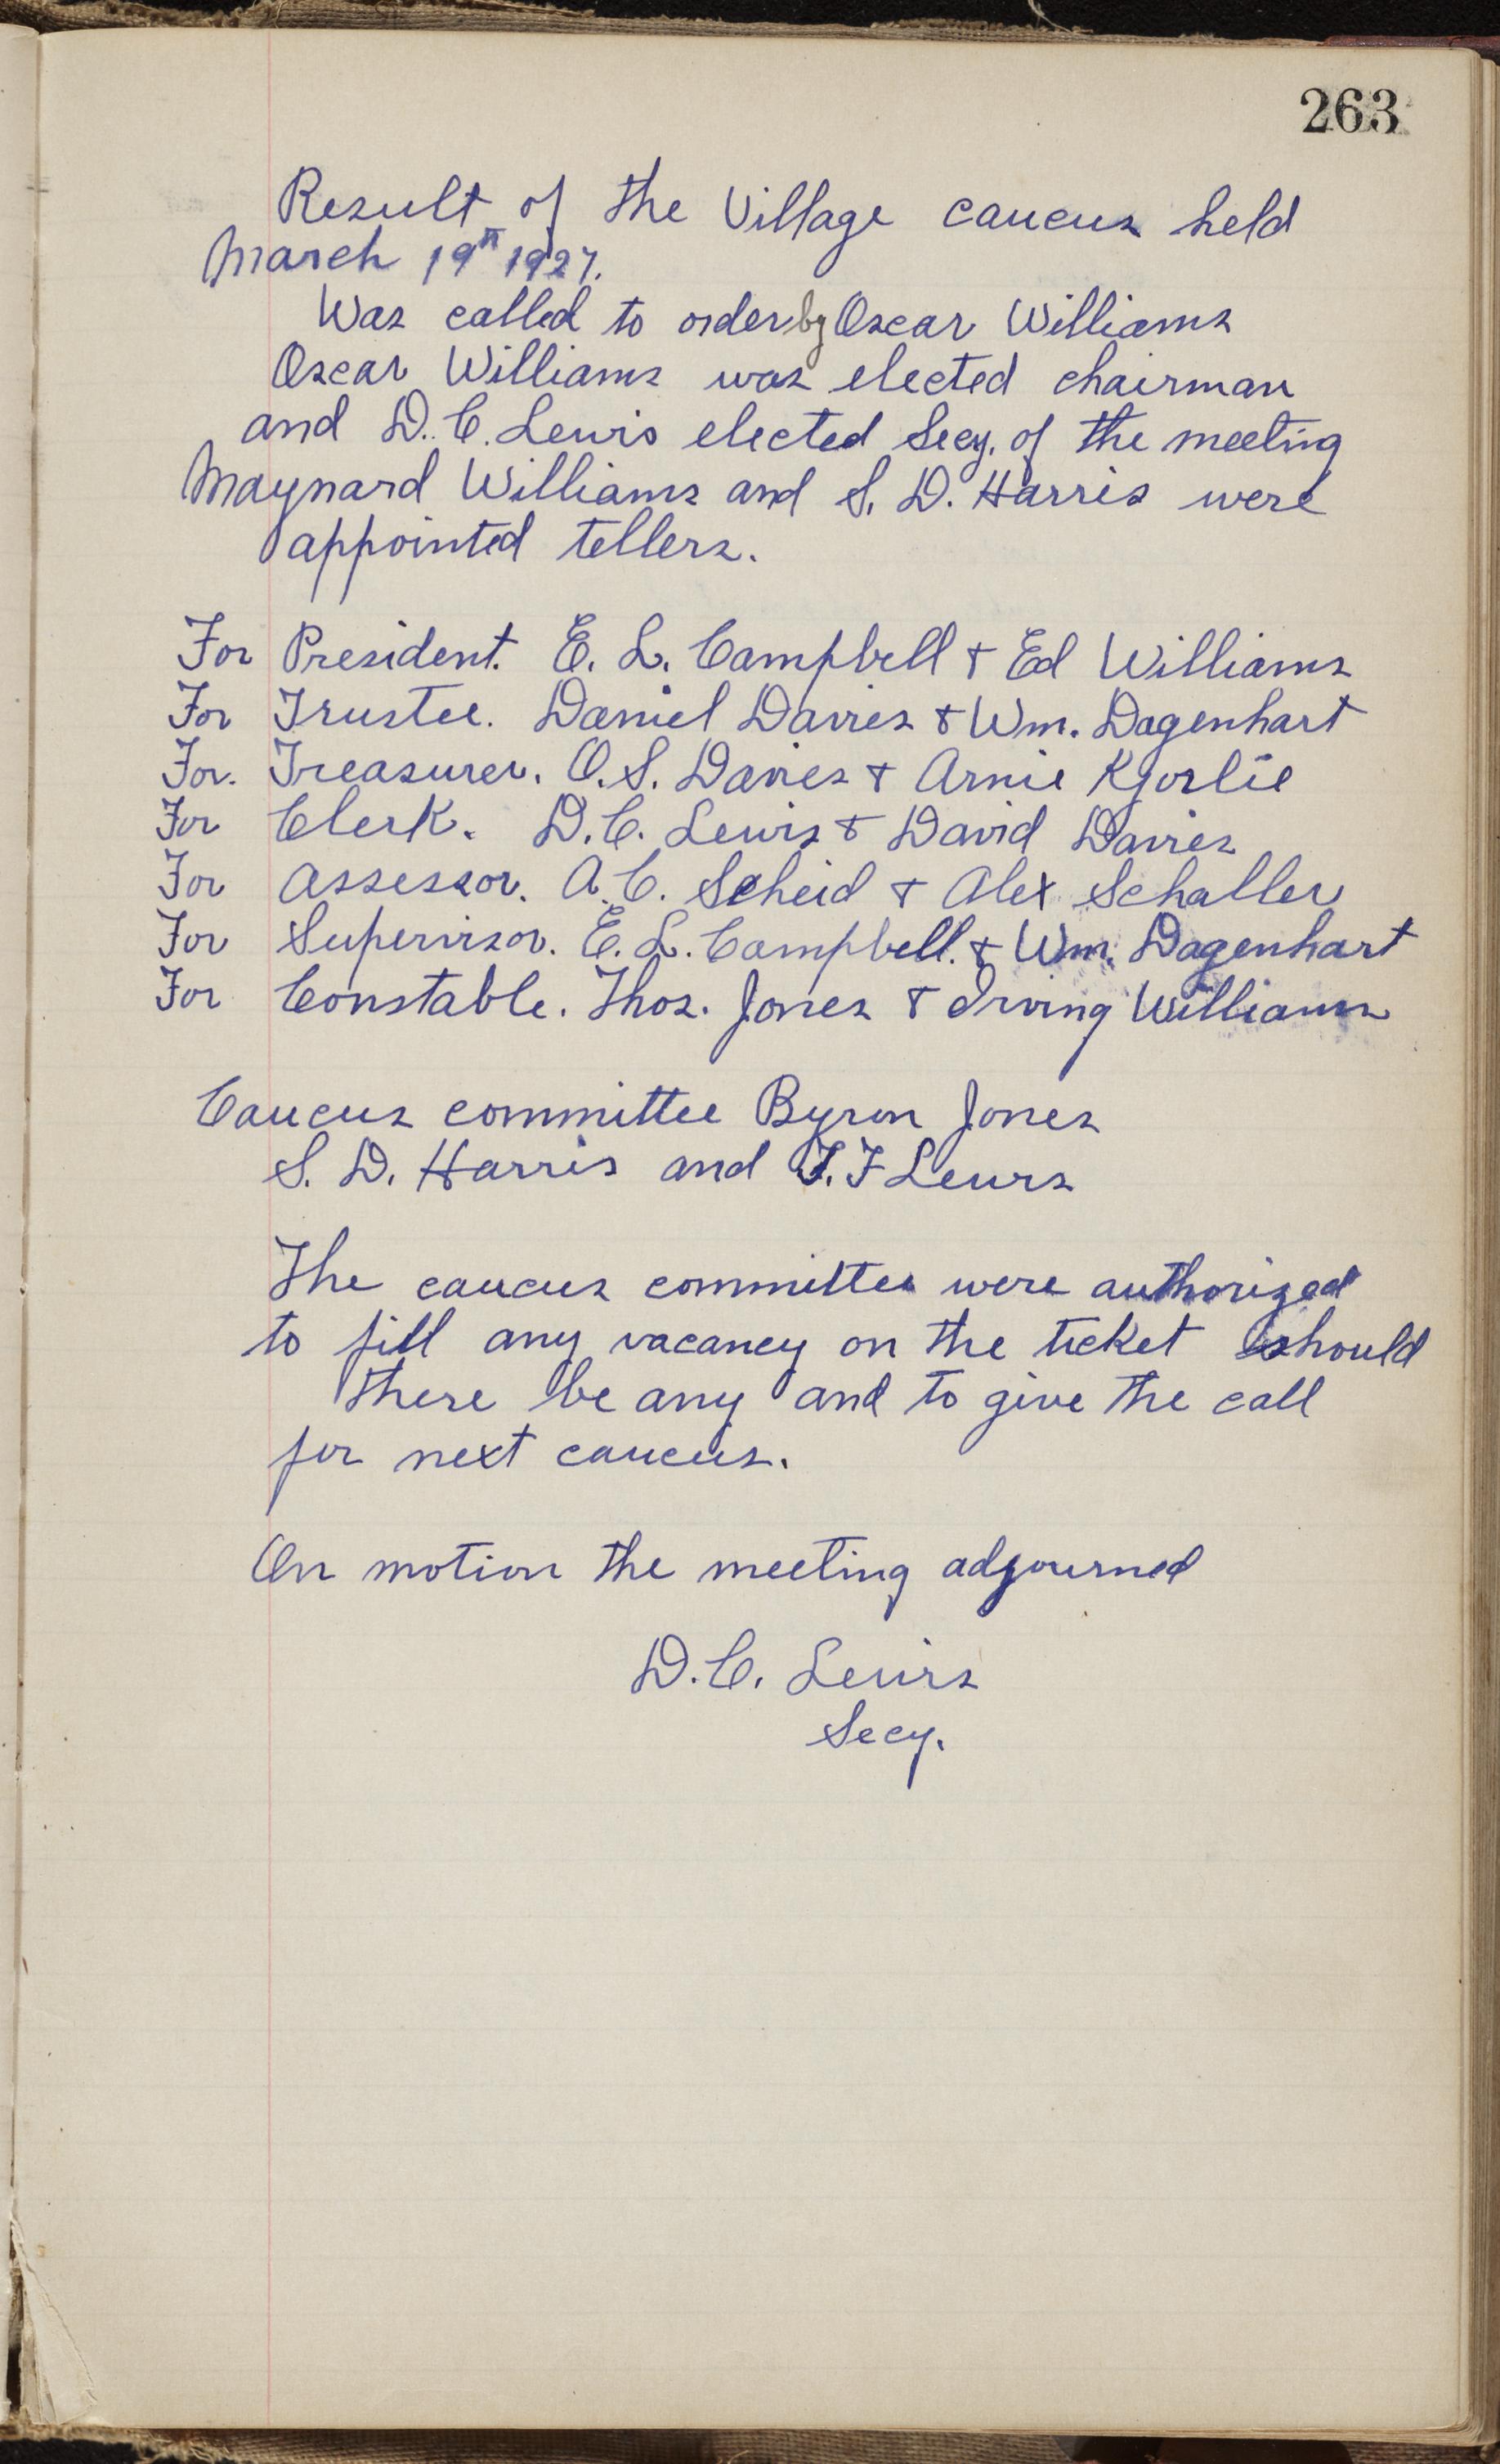 263
Result of the Village caucus held
March 19th 1927.
Was called to order by Oscar Williams
Oscar Williams was elected chairman
and D. C. Lewis elected Secy. of the meeting
Maynard Williams and S. D. Harris were
appointed tellers.
For President. E. L. Campbell & Ed Williams
For Trustee. Daniel Davies & Wm. Dagenhart
For. Treasurer. O. S. Davies & Arnie Kjorlie
For Clerk. D. C. Lewis & David Davies
For Assessor. A. C. Scheid & Alex Schaller
For Supervisor. E. L. Campbell. & Wm. Dagenhart
For Constable. Thos. Jones & Irving Williams
Caucus committee Byron Jones
S. D. Harris and T. F Lewis
The caucus committee were authorized
to fill any vacancy on the ticket should
there be any and to give the call
for next caucus.
On motion the meeting adjourned
D. C. Lewis
Secy.